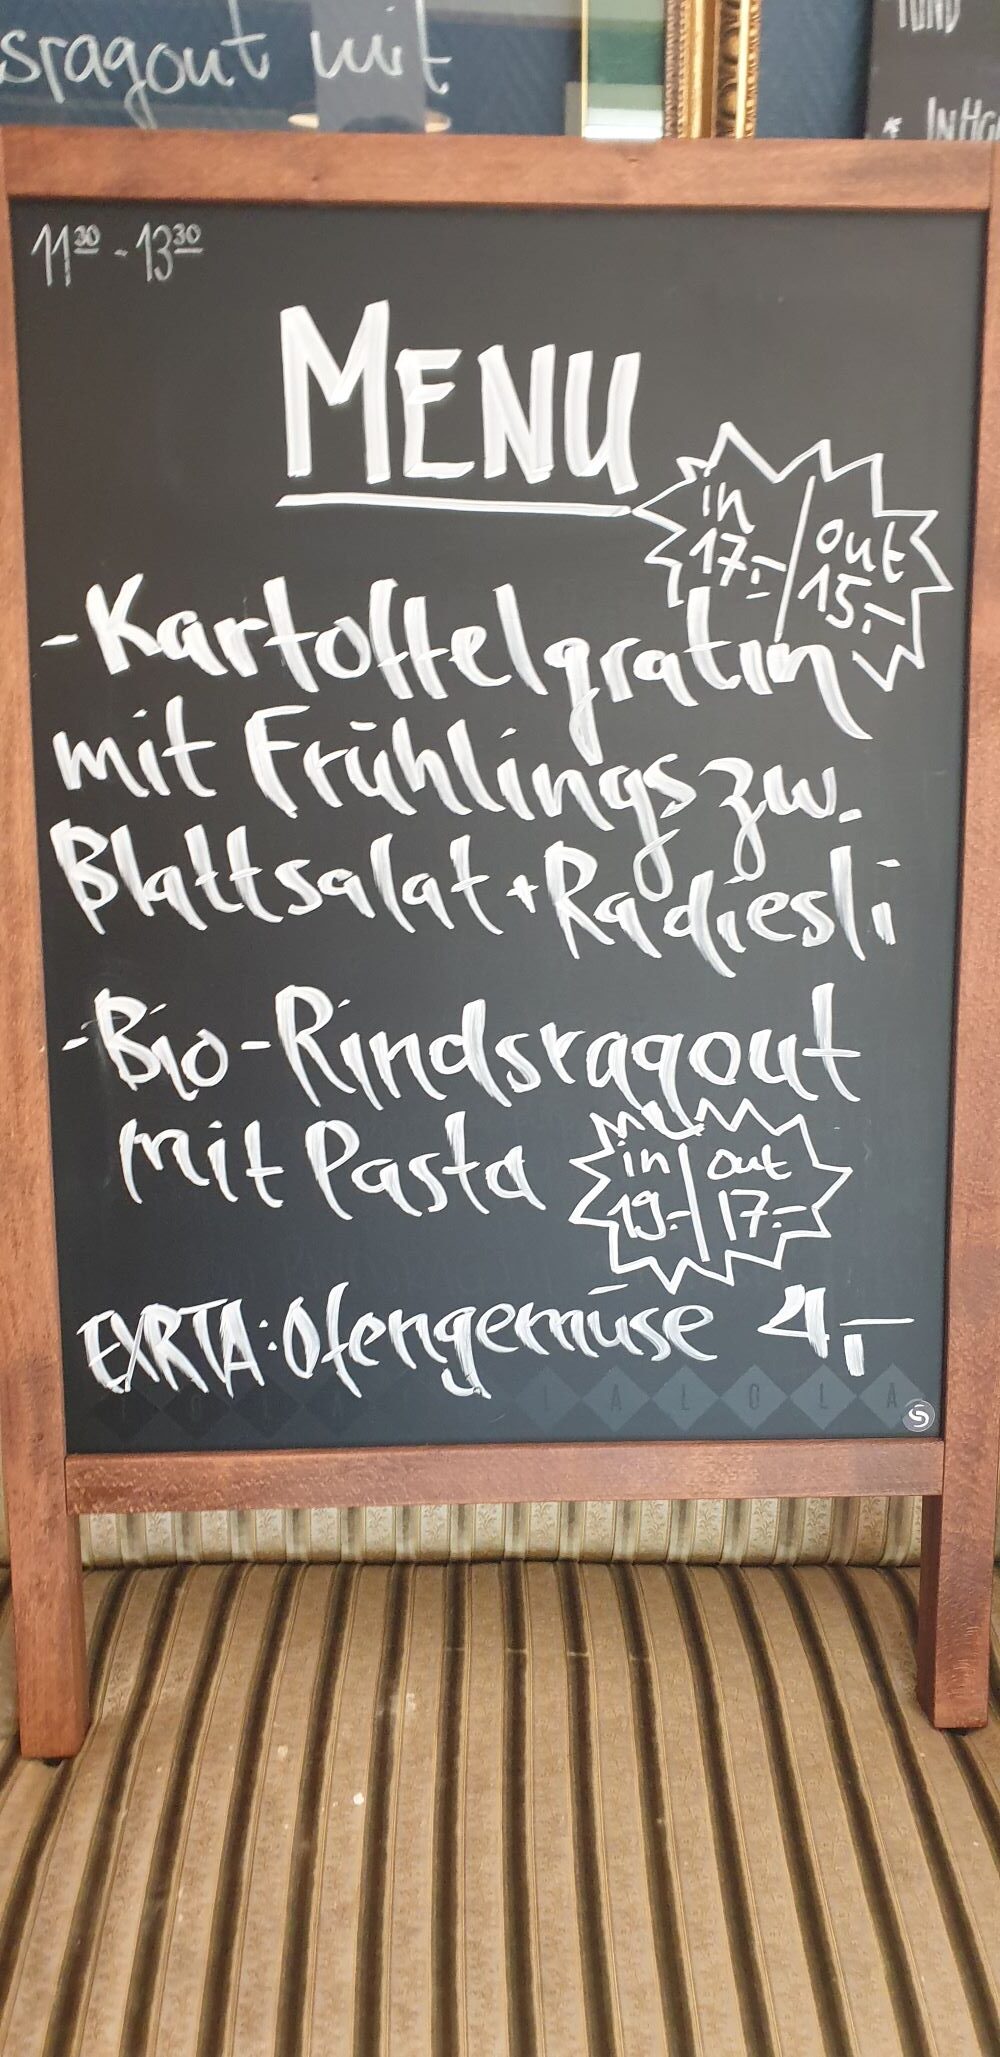 sragout mit
11³⁰ - 13³⁰
MENU
in 17.- / out 15.-
- Kartoffelgratin
mit Frühlingszw.
Blattsalat + Radiesli
- Bio-Rindsragout
mit Pasta
in 19.- | out 17.-
EXRTA: Ofengemüse 4.-
LALOLA